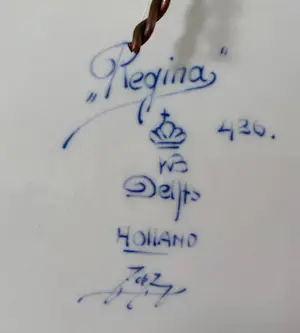 „Regina”
436.
WB
Delfts
HOLLAND